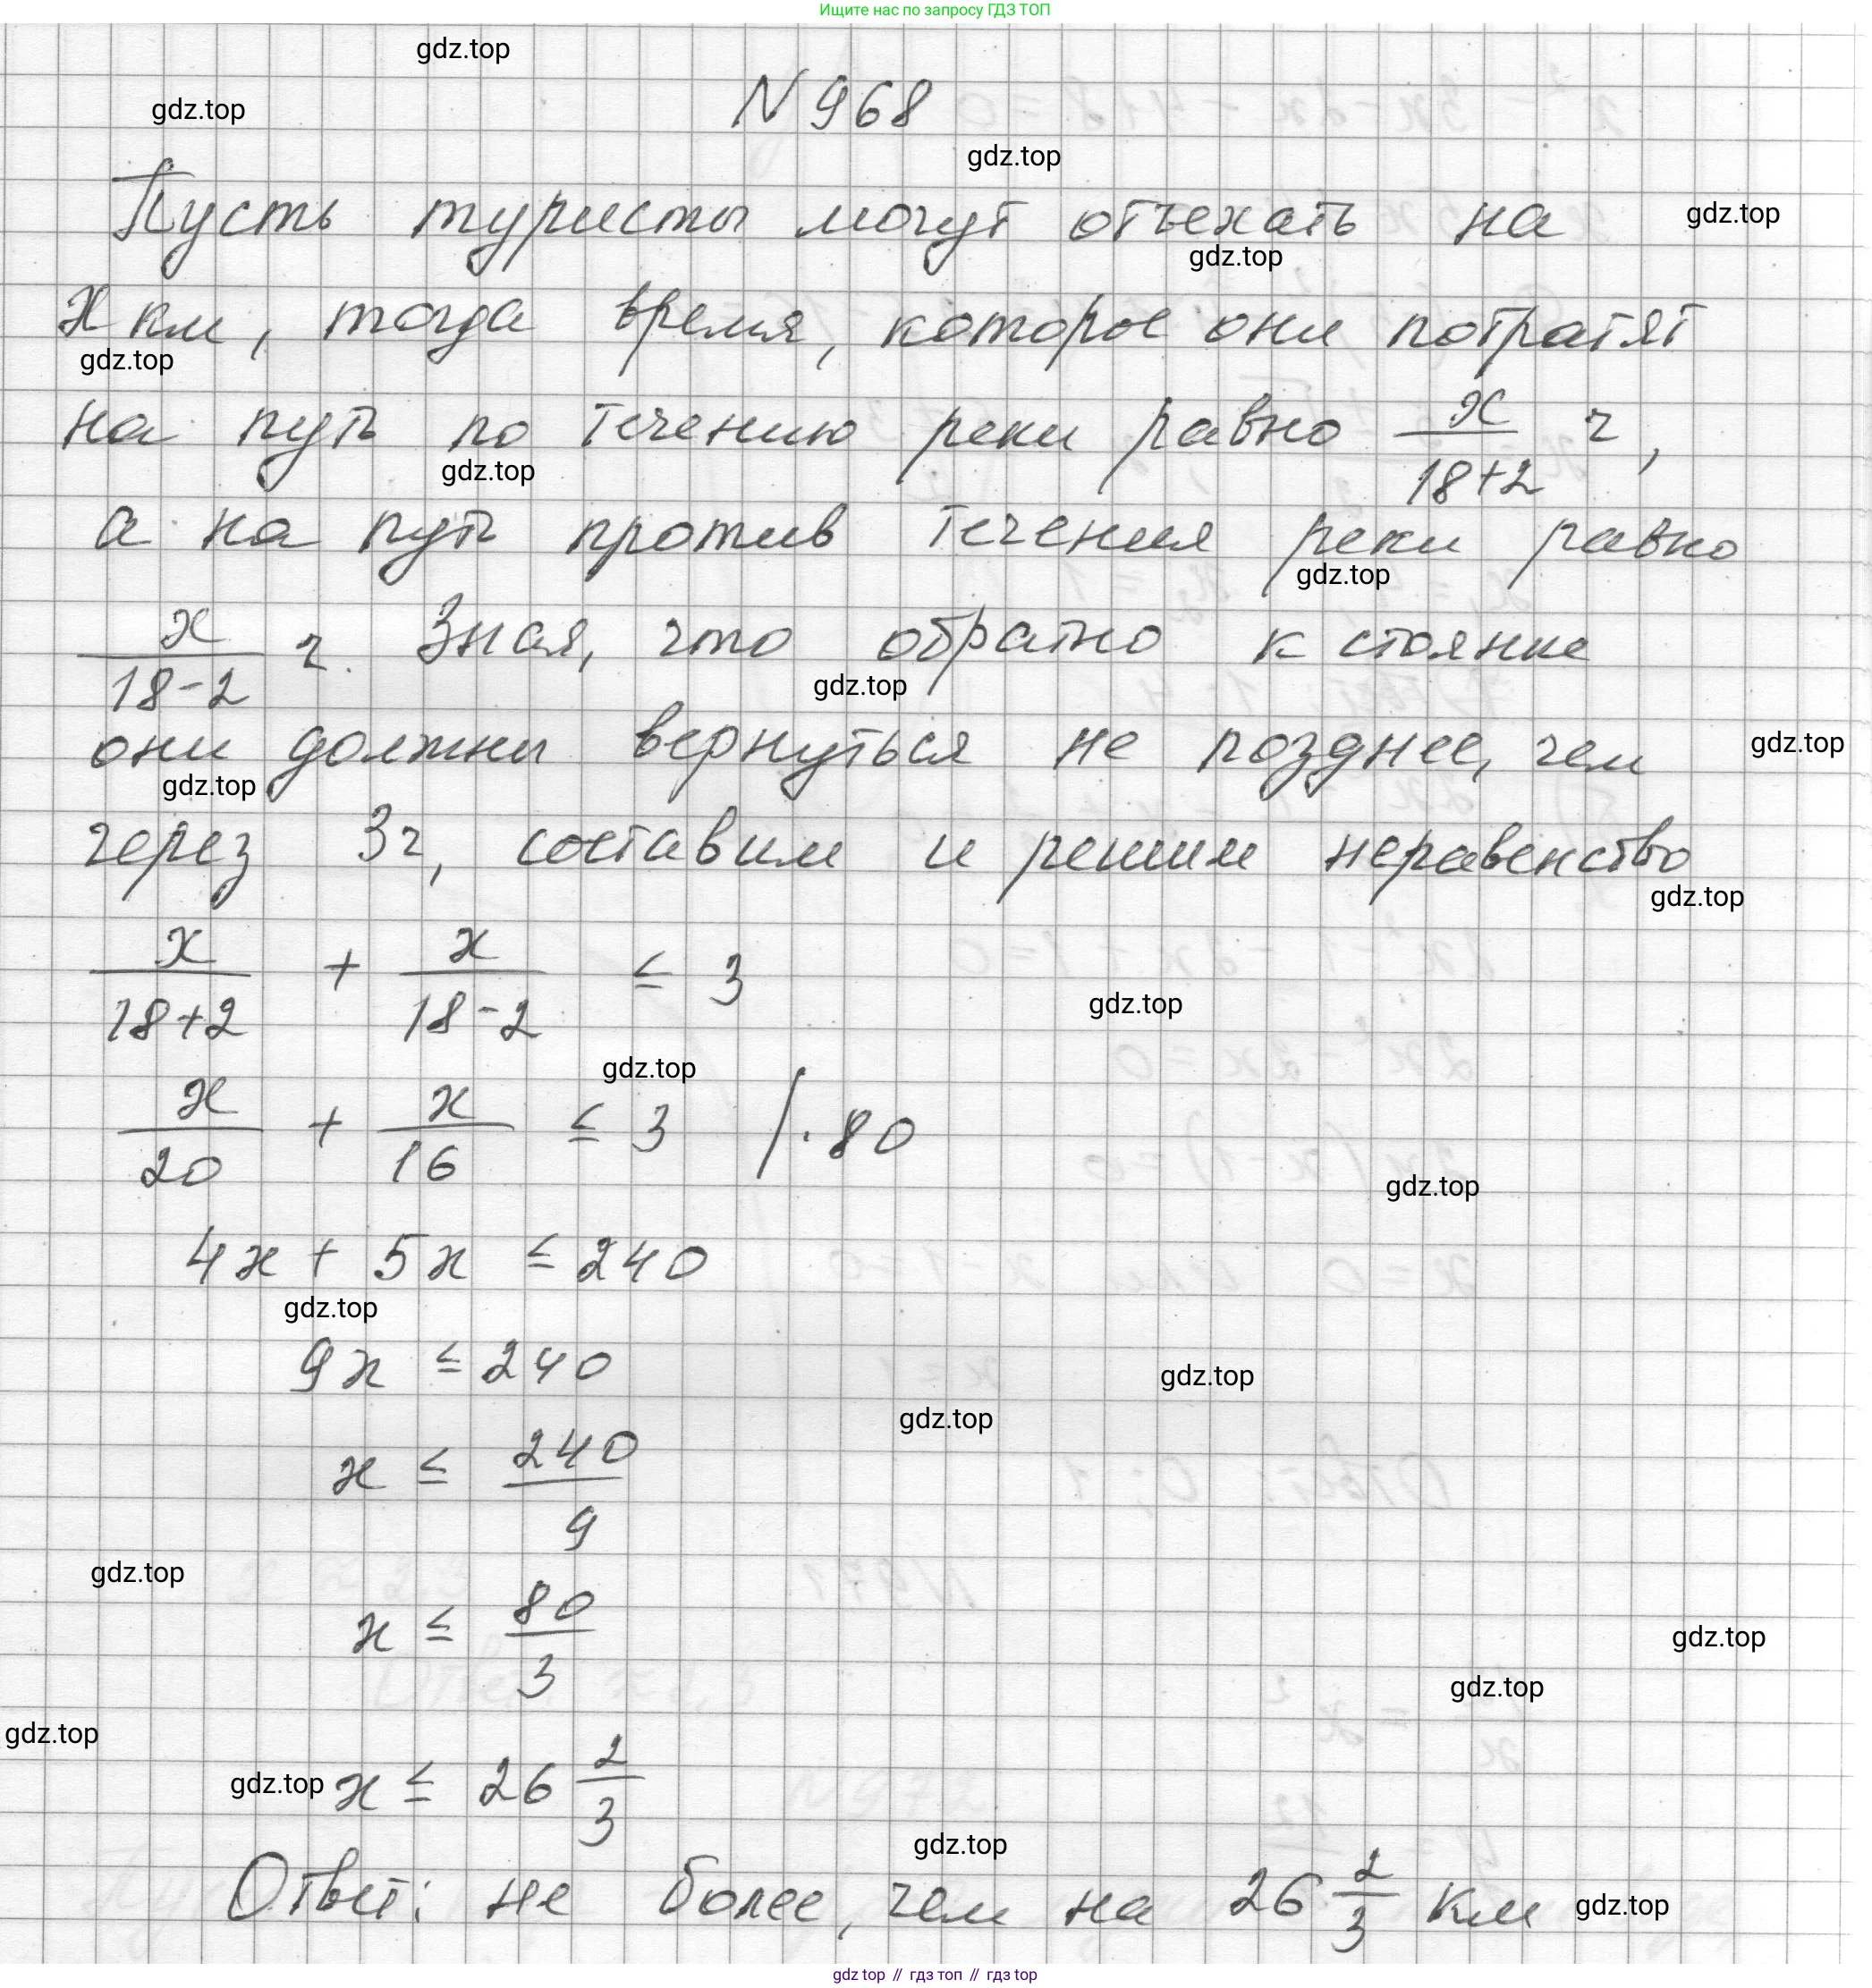 Ищите нас по запросу ГДЗ ТОП
gdz.top
gdz.top
N 968
gdz.top
Пусть туристы могут отъехать на
gdz.top
gdz.top
x км, тогда время, которое они потратят
gdz.top
на путь по течению реки равно x/(18+2) ч,
gdz.top
а на путь против течения реки равно
gdz.top
x/(18-2) ч. Зная, что обратно к стоянке
gdz.top
они должны вернуться не позднее, чем
gdz.top
gdz.top
через 3ч, составим и решим неравенство
gdz.top
x/(18+2) + x/(18-2) ≤ 3
gdz.top
gdz.top
x/20 + x/16 ≤ 3 /·80
gdz.top
4x + 5x ≤ 240
gdz.top
9x ≤ 240
gdz.top
gdz.top
x ≤ 240/9
gdz.top
x ≤ 80/3
gdz.top
gdz.top
gdz.top
gdz.top
x ≤ 26 2/3
gdz.top
Ответ: не более, чем на 26 2/3 км
gdz.top
gdz top // гдз топ // гдз top